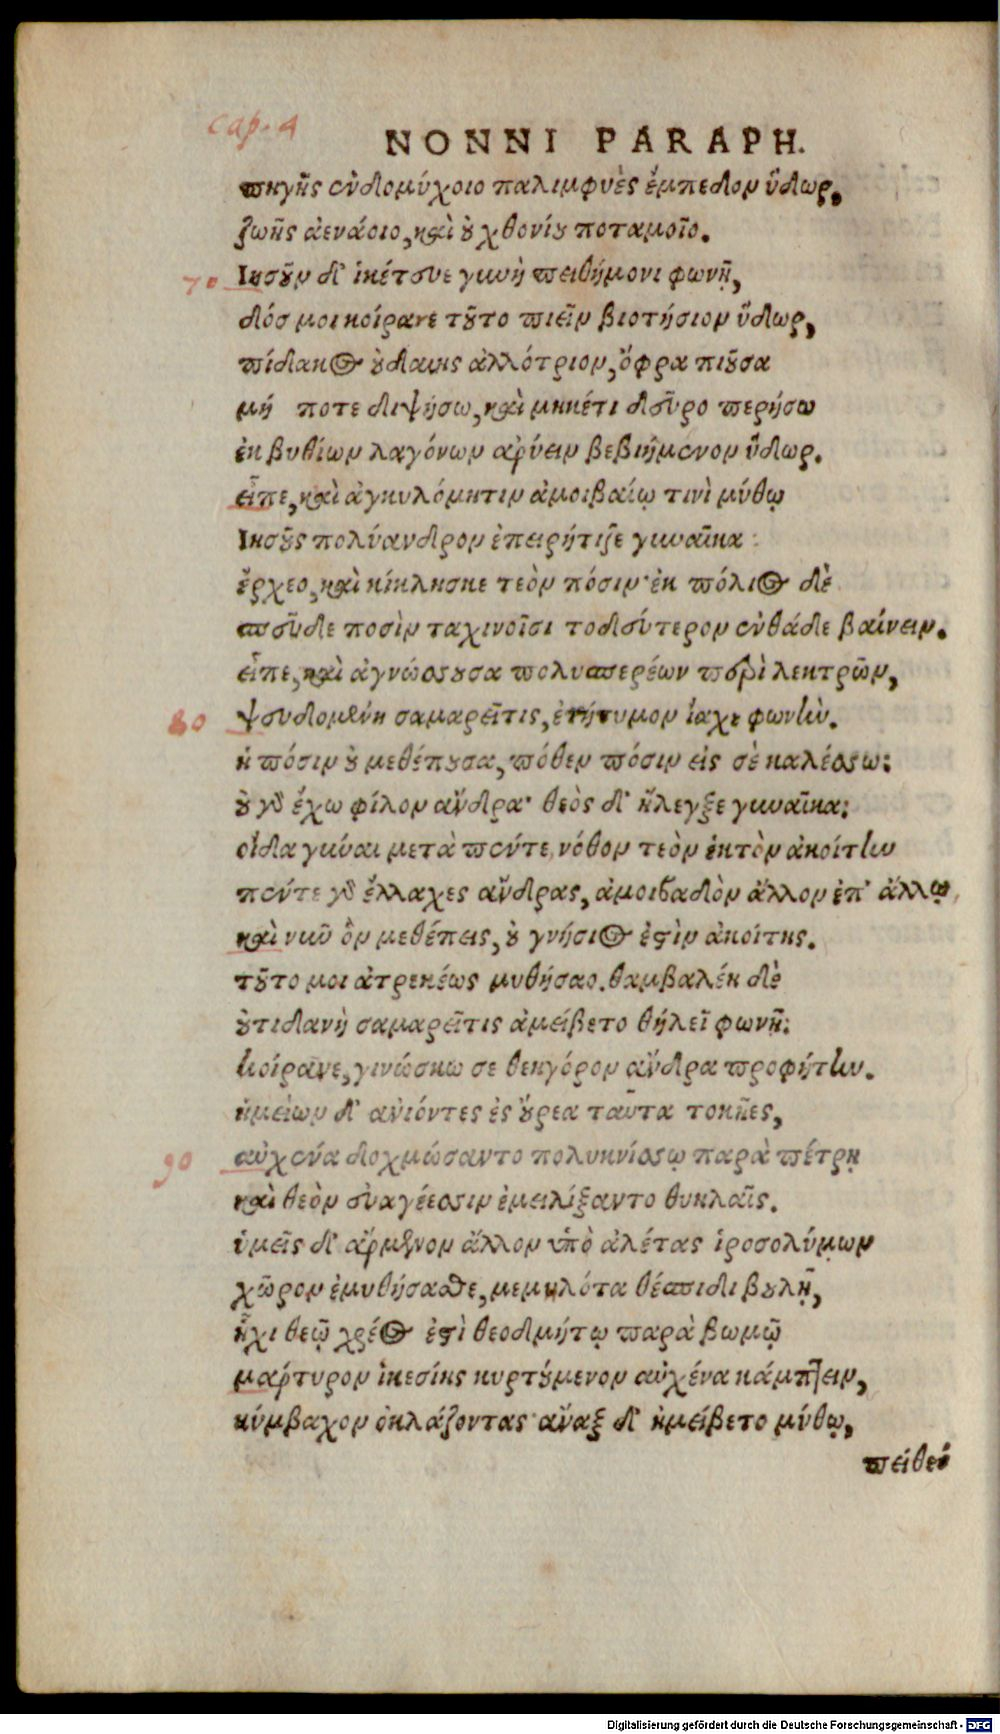 cap. 4
NONNI PARAPH.
πηγῆς ἐνδομύχοιο παλιμφυὲς ἔμπεδον ὕδωρ,
ζωῆς ἀενάοιο, καὶ οὐ χθονίου ποταμοῖο.
70 Ἰησοῦν δ' ἱκέτευε γυνὴ πειθήμονι φωνῇ,
δός μοι κοίρανε τοῦτο πιεῖν βιοτήσιον ὕδωρ,
πίδακος οὐδαίης ἀλλότριον, ὄφρα πιοῦσα
μή ποτε διψήσω, καὶ μηκέτι δεῦρο περήσω
ἐκ βυθίων λαγόνων ἀρύειν βεβιημένον ὕδωρ.
εἶπε, καὶ ἀγκυλόμητιν ἀμοιβαίῳ τινὶ μύθῳ
Ἰησοῦς πολύανδρον ἐπειρήτιζε γυναῖκα:
ἔρχεο, καὶ κίκλησκε τεὸν πόσιν· ἐκ πόλιος δὲ
σπεῦδε ποσὶν ταχινοῖσι τοδεύτερον ἐνθάδε βαίνειν.
εἶπε, καὶ ἀγνώσσουσα πολυσπερέων περὶ λεκτρῶν,
80 ψευδομένη σαμαρεῖτις, ἐτήτυμον ἴαχε φωνήν.
ἡ πόσιν οὐ μεθέπουσα, πόθεν πόσιν εἰς σὲ καλέσσω;
οὐ γὰρ ἔχω φίλον ἄνδρα· θεὸς δ' ἤλεγξε γυναῖκα;
οἶδα γύναι μετὰ πέντε νόθον τεὸν ἑκτὸν ἀκοίτην
πέντε γὰρ ἔλλαχες ἄνδρας, ἀμοιβαδὸν ἄλλον ἐπ' ἄλλῳ,
καὶ νῦν ὃν μεθέπεις, οὐ γνήσιος ἐστὶν ἀκοίτης.
τοῦτο μοι ἀτρεκέως μυθήσαο. θαμβαλέη δὲ
οὐτιδανὴ σαμαρεῖτις ἀμείβετο θήλεϊ φωνῇ;
κοίρανε, γινώσκω σε θεηγόρον ἄνδρα προφήτην.
ἡμείων δ' ἀνιόντες ἐς οὔρεα ταῦτα τοκῆες,
90 αὐχένα δοχμώσαντο πολυκνίσσῳ παρὰ πέτρῃ
καὶ θεὸν εὐαγέεσσιν ἐμειλίξαντο θυηλαῖς.
ὑμεῖς δ' ἄρμενον ἄλλον ὑπὸ ἀλέτας ἱροσολύμων
χῶρον ἐμυθήσασθε, μεμηλότα θέσπιδι βουλῇ,
ἧχι θεῷ χρέος ἐστὶ θεοδμήτῳ παρὰ βωμῷ
μαρτυρον ἱκεσίης κυρτούμενον αὐχένα κάμπτειν,
κύμβαχον ὀκλάζοντας· ἄναξ δ' ἠμείβετο μύθῳ,
πείθεό
Digitalisierung gefördert durch die Deutsche Forschungsgemeinschaft - DFG